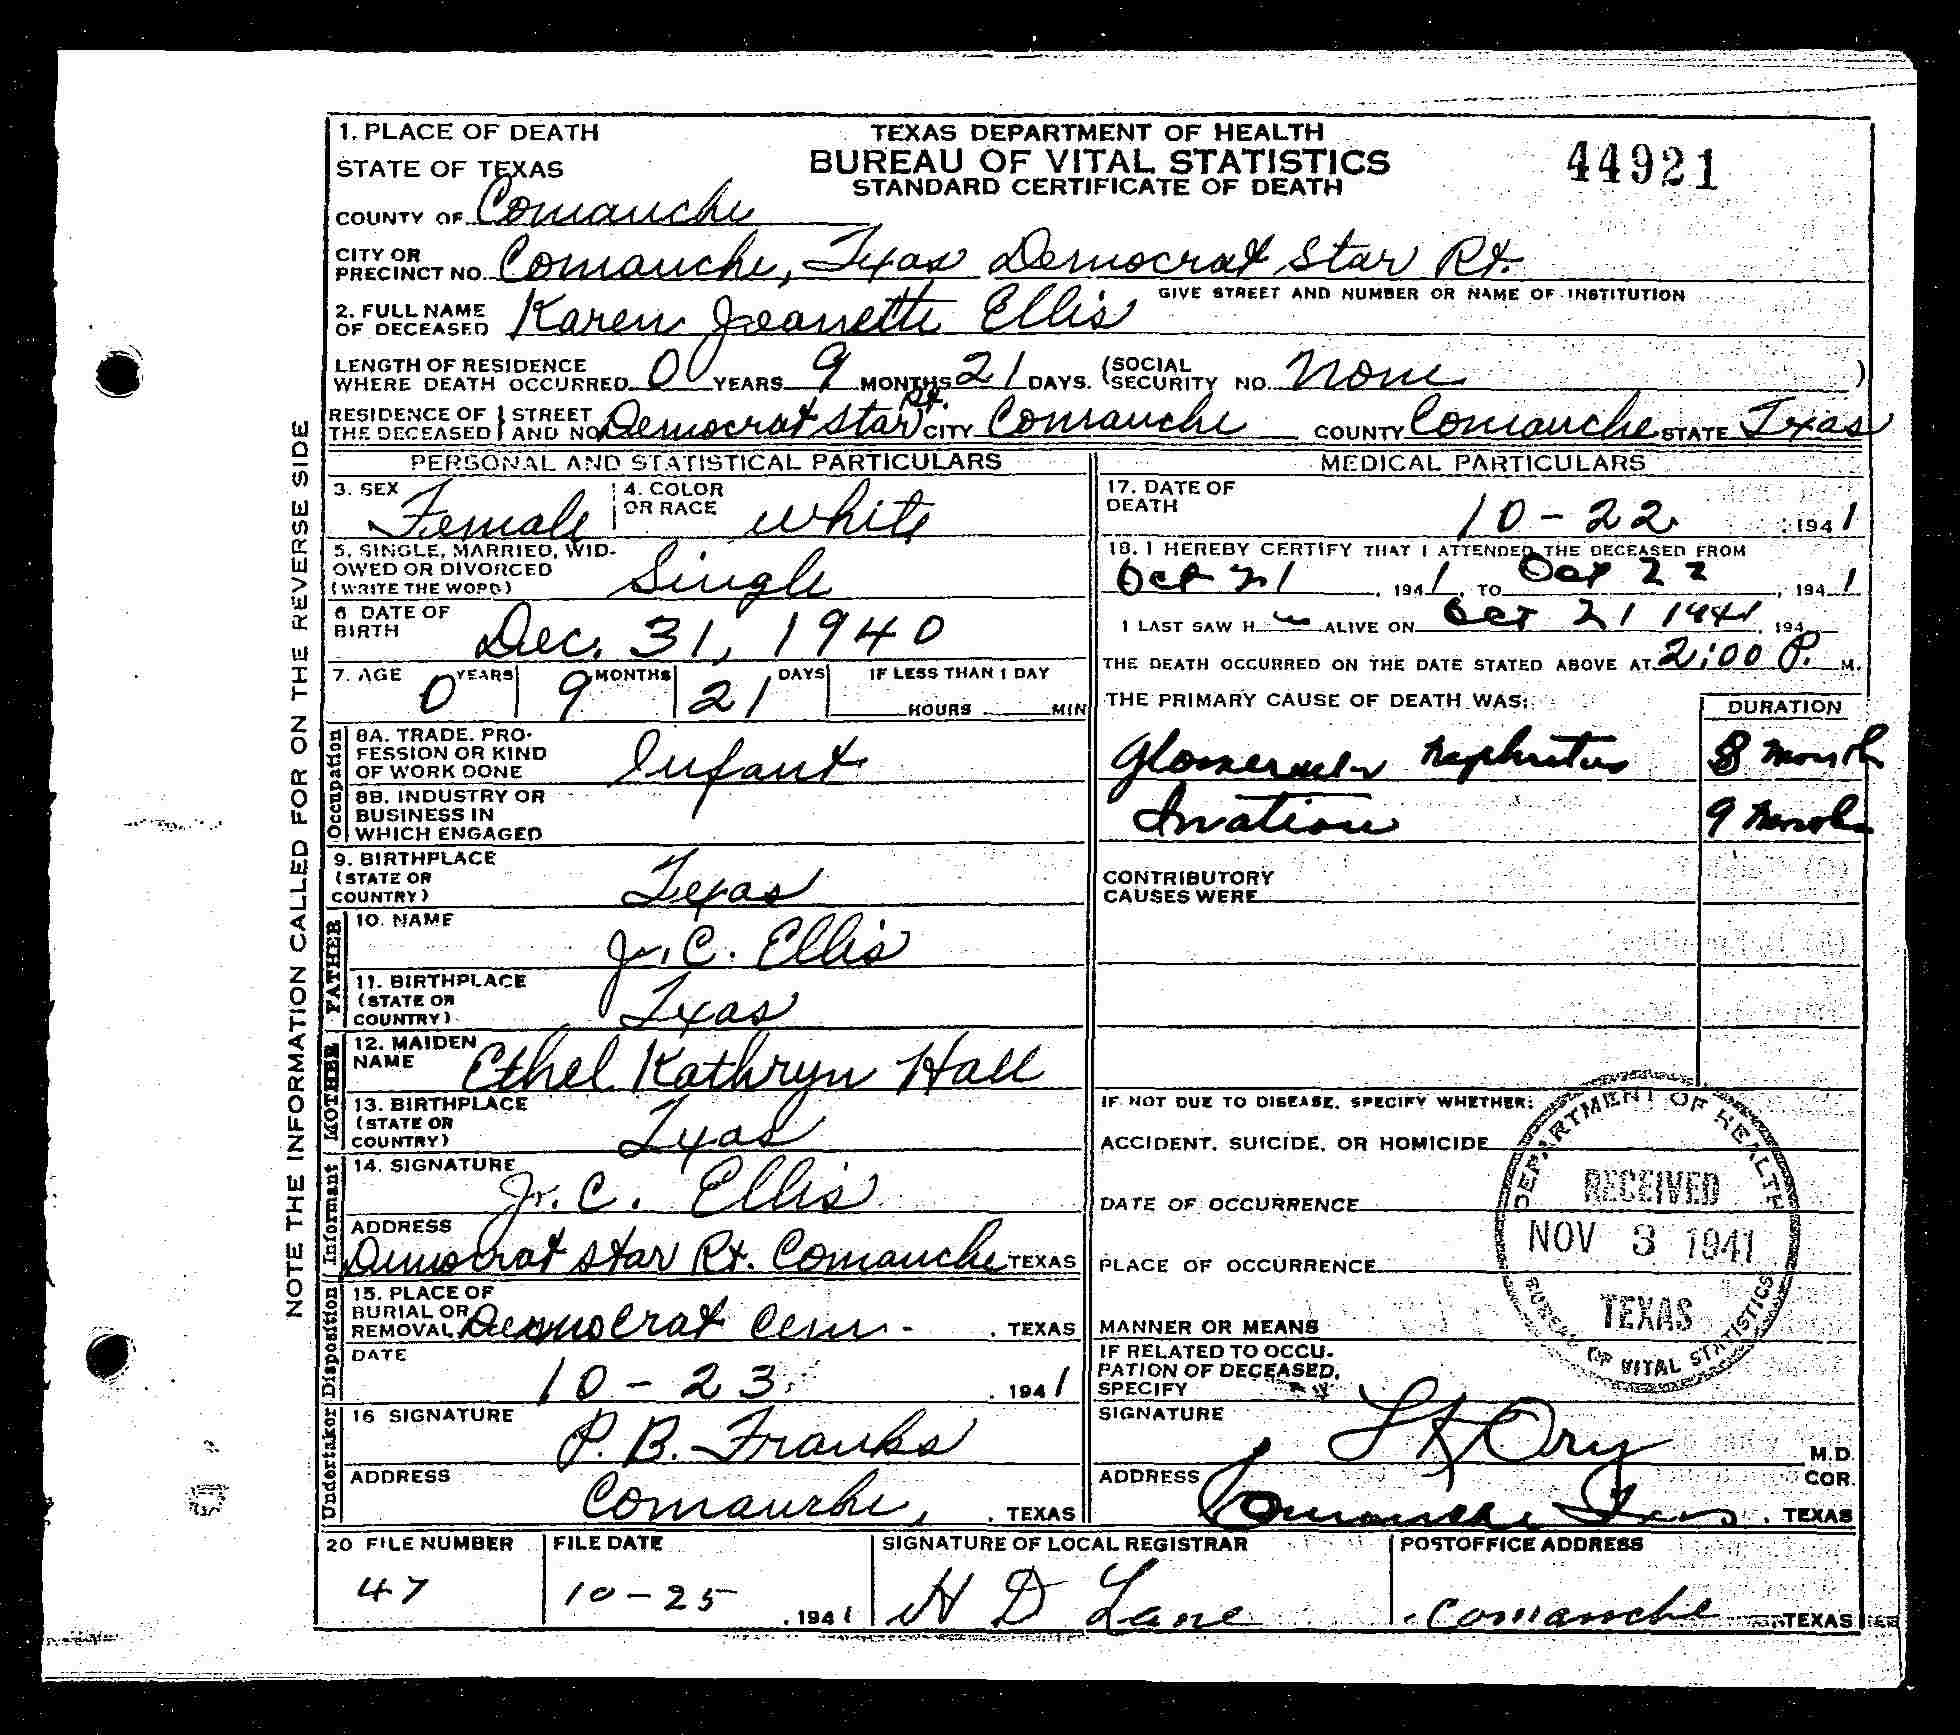 1. PLACE OF DEATH
STATE OF TEXAS
TEXAS DEPARTMENT OF HEALTH
BUREAU OF VITAL STATISTICS
STANDARD CERTIFICATE OF DEATH
44921
COUNTY OF Comanche
CITY OR PRECINCT NO. Comanche, Texas Democrat Star Rt.
GIVE STREET AND NUMBER OR NAME OF INSTITUTION
2. FULL NAME OF DECEASED Karen Jeanette Ellis
LENGTH OF RESIDENCE WHERE DEATH OCCURRED 0 YEARS 9 MONTHS 21 DAYS. (SOCIAL SECURITY NO. None )
RESIDENCE OF THE DECEASED STREET AND NO. Democrat Star Rt. CITY Comanche COUNTY Comanche STATE Texas
NOTE THE INFORMATION CALLED FOR ON THE REVERSE SIDE
PERSONAL AND STATISTICAL PARTICULARS
3. SEX Female 4. COLOR OR RACE White
5. SINGLE, MARRIED, WIDOWED OR DIVORCED (WRITE THE WORD) Single
6 DATE OF BIRTH Dec. 31, 1940
7. AGE 0 YEARS 9 MONTHS 21 DAYS IF LESS THAN 1 DAY HOURS MIN
Occupation
8A. TRADE, PROFESSION OR KIND OF WORK DONE Infant
8B. INDUSTRY OR BUSINESS IN WHICH ENGAGED
9. BIRTHPLACE (STATE OR COUNTRY) Texas
FATHER
10. NAME J.C. Ellis
11. BIRTHPLACE (STATE OR COUNTRY) Texas
MOTHER
12. MAIDEN NAME Ethel Kathryn Hall
13. BIRTHPLACE (STATE OR COUNTRY) Texas
Informant
14. SIGNATURE J.C. Ellis
ADDRESS Democrat Star Rt. Comanche TEXAS
Disposition
15. PLACE OF BURIAL OR REMOVAL Democrat Cem. , TEXAS
DATE 10-23 , 1941
Undertaker
16 SIGNATURE P. B. Franks
ADDRESS Comanche, , TEXAS
MEDICAL PARTICULARS
17. DATE OF DEATH 10-22 , 1941
18. I HEREBY CERTIFY THAT I ATTENDED THE DECEASED FROM
Oct 21 , 1941, TO Oct 22 , 1941
I LAST SAW H ALIVE ON Oct 21 1941, 194
THE DEATH OCCURRED ON THE DATE STATED ABOVE AT 2:00 P. M.
THE PRIMARY CAUSE OF DEATH WAS: DURATION
Glomerular Nephritis 8 month
9 months
CONTRIBUTORY CAUSES WERE
IF NOT DUE TO DISEASE, SPECIFY WHETHER:
ACCIDENT, SUICIDE, OR HOMICIDE
DATE OF OCCURRENCE
PLACE OF OCCURRENCE
MANNER OR MEANS
IF RELATED TO OCCUPATION OF DECEASED, SPECIFY
DEPARTMENT OF HEALTH
RECEIVED
NOV 3 1941
TEXAS
BUREAU OF VITAL STATISTICS
SIGNATURE Ory M.D.
COR.
ADDRESS Comanche Texas , TEXAS
20 FILE NUMBER 47
FILE DATE 10-25 , 1941
SIGNATURE OF LOCAL REGISTRAR H D Lane
POSTOFFICE ADDRESS Comanche TEXAS